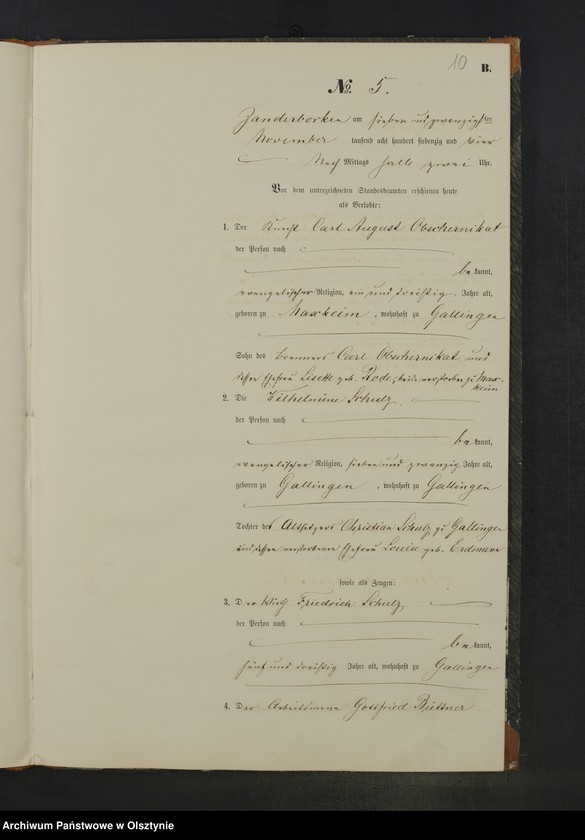 10
B.
No. 5.
Zanderborken am sieben und zwanzigsten
November tausend acht hundert siebenzig und vier
Nach Mittags halb zwei Uhr.
Vor dem unterzeichneten Standesbeamten erschienen heute
als Verlobte:
1. Der Knecht Carl August Obschernikat
der Person nach
bekannt,
evangelischer Religion, ein und dreißig Jahre alt,
geboren zu Maxkeim, wohnhaft zu Gallingen
Sohn des Brenners Carl Obschernikat und
dessen Ehefrau Lisette geb. Rode, beide verstorben zu Max-
keim
2. Die Wilhelmine Schulz
der Person nach
bekannt,
evangelischer Religion, sieben und zwanzig Jahre alt,
geboren zu Gallingen, wohnhaft zu Gallingen
Tochter des Altsitzers Christian Schulz zu Gallingen
und dessen verstorbenen Ehefrau Louise geb. Erdmann
sowie als Zeugen:
3. Der Wirth Friedrich Schulz
der Person nach
bekannt,
fünf und dreißig Jahre alt, wohnhaft zu Gallingen
4. Der Arbeitsmann Gottfried Büttner
Archiwum Państwowe w Olsztynie